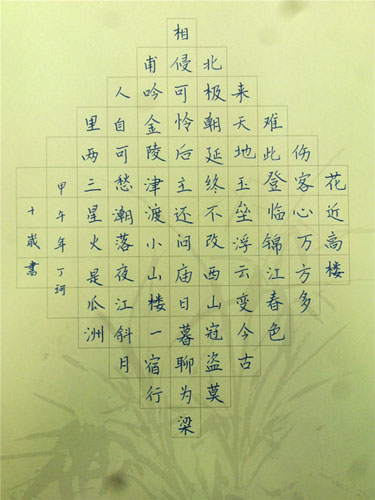 花近高楼
伤客心万方多
难此登临锦江春色
来天地玉垒浮云变今古
北极朝延终不改西山寇盗莫
相侵可怜后主还问庙日暮聊为梁
甫吟金陵津渡小山楼一宿行
人自可愁潮落夜江斜月
里两三星火是瓜洲
甲午年丁珂
十歳書